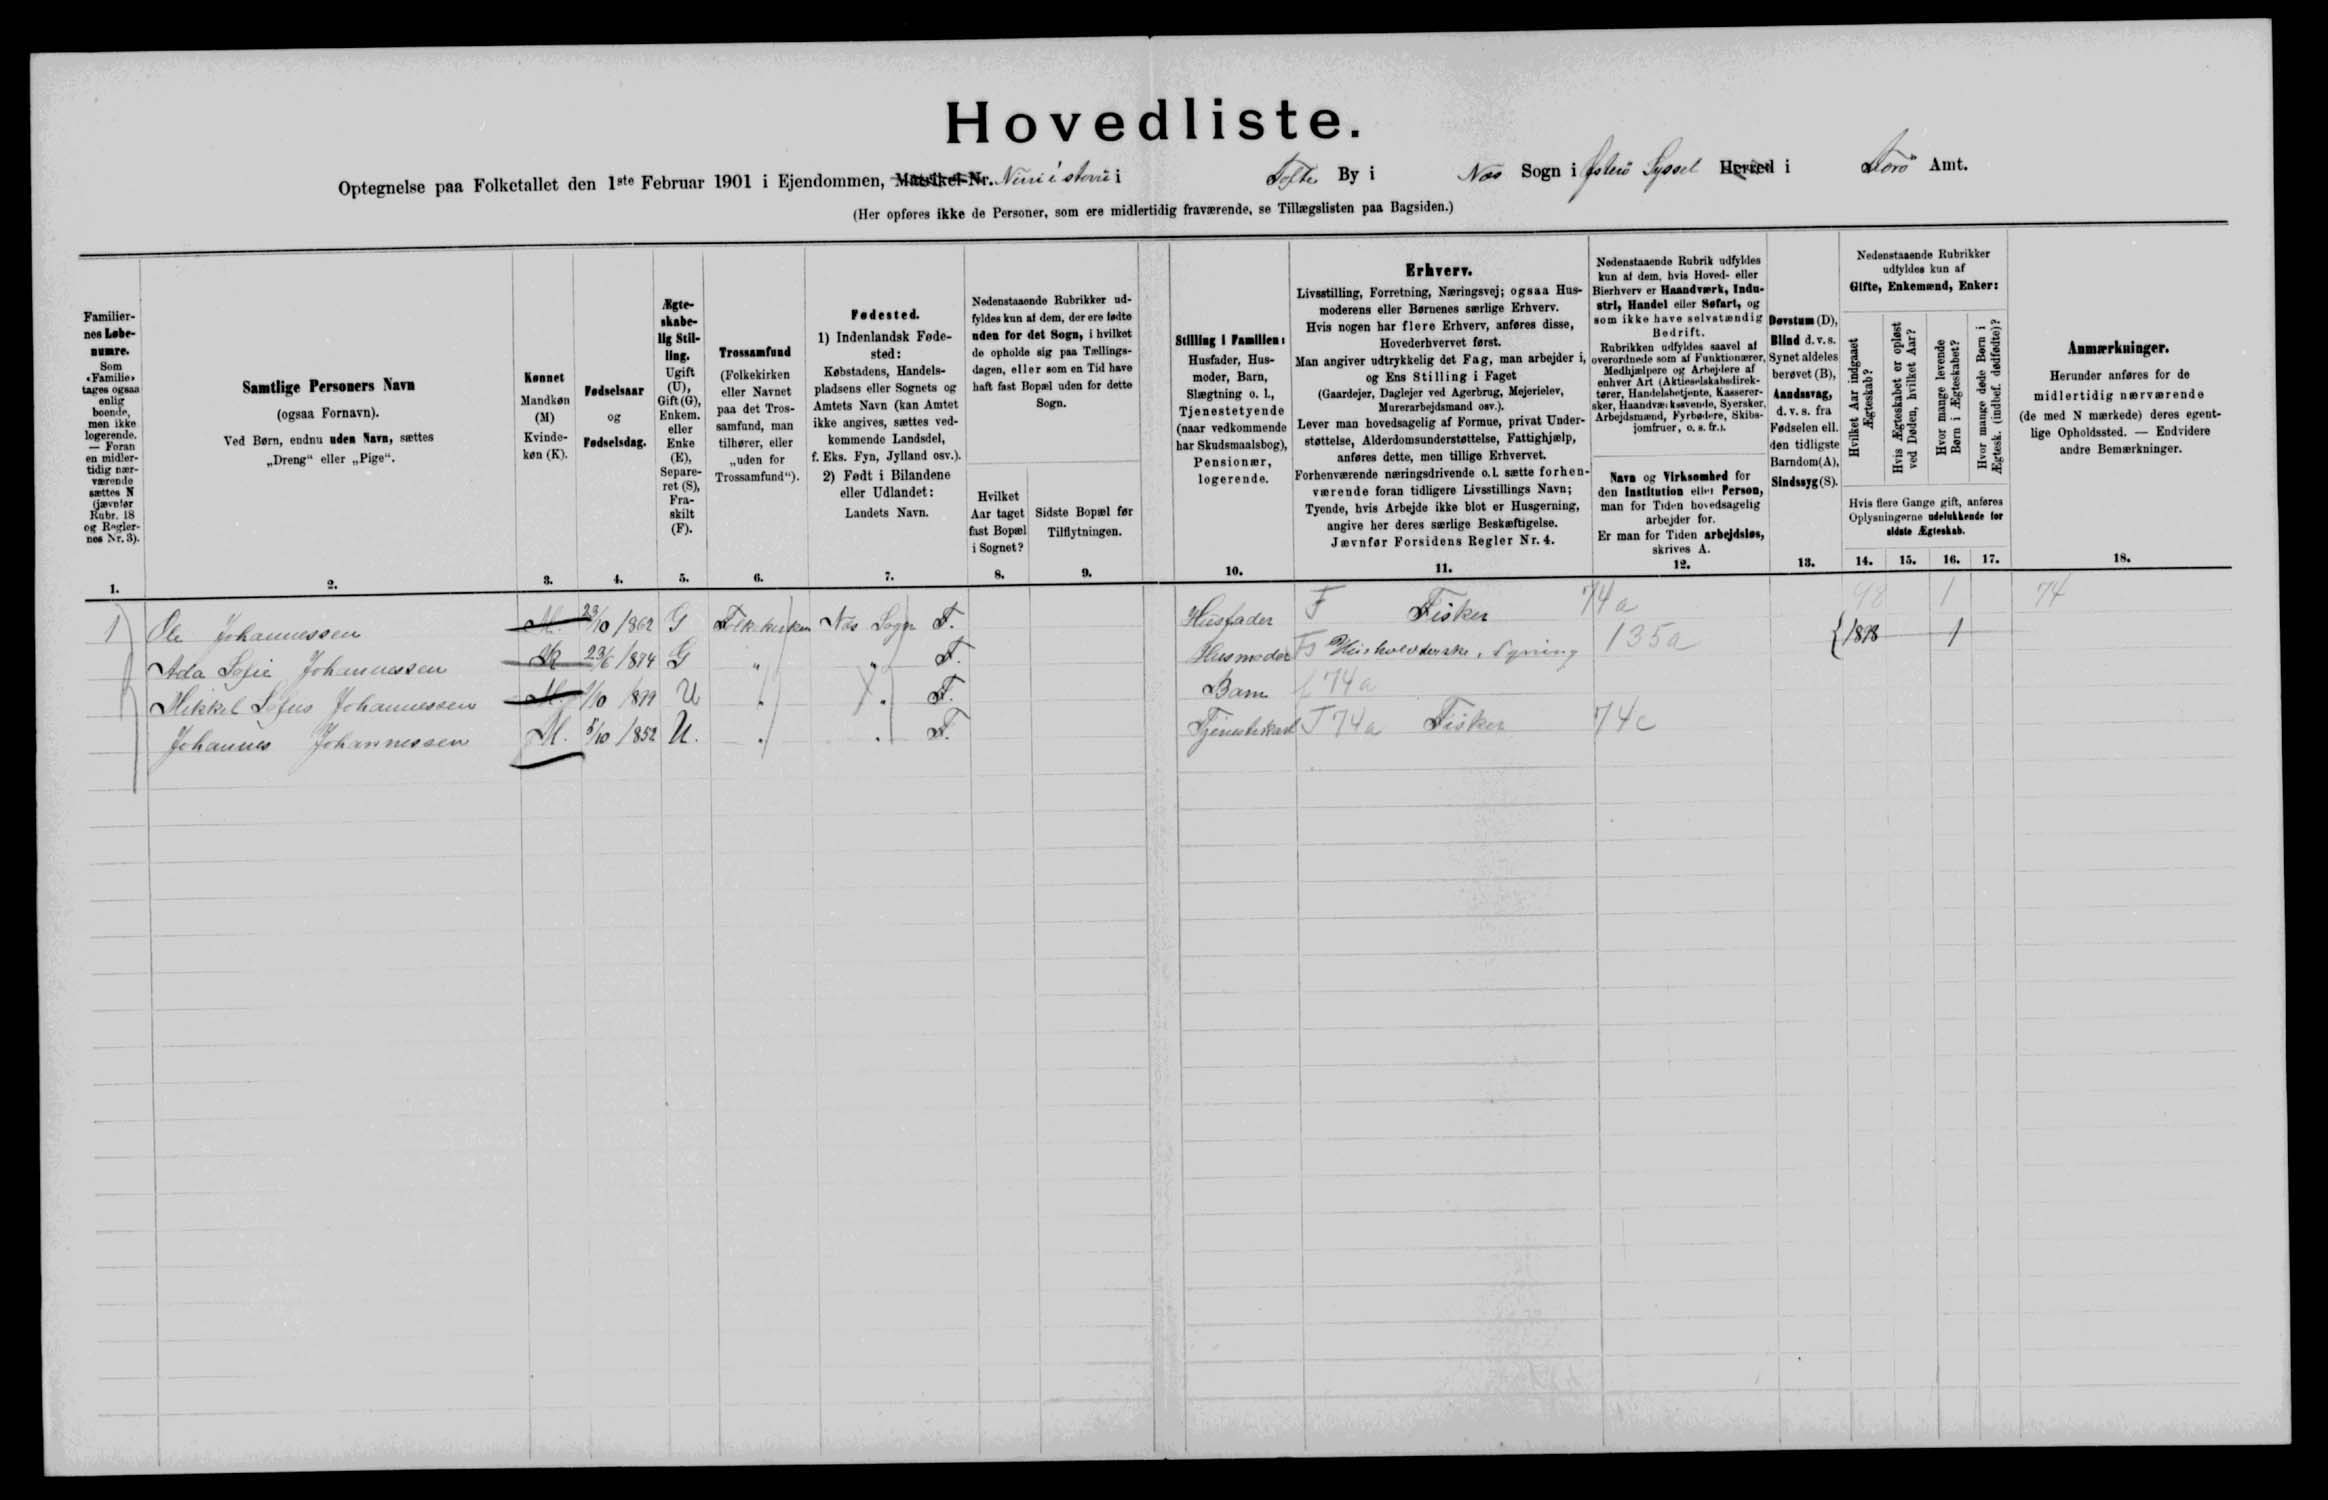 Hovedliste.
Optegnelse paa Folketallet den 1ste Februar 1901 i Ejendommen, Matrikel-Nr. Niri i stovu i Tofte By i Næs Sogn i Østerö Syssel Herred i Færö Amt.
(Her opføres ikke de Personer, som ere midlertidig fraværende, se Tillægslisten paa Bagsiden.)
Familier-
nes Løbe-
numre.
Som
«Familie»
tages ogsaa
enlig
boende,
men ikke
logerende.
— Foran
en midler-
tidig nær-
værende
sættes N
(jævnfør
Rubr. 18
og Regler-
nes Nr. 3).
1.
Samtlige Personers Navn
(ogsaa Fornavn).
Ved Børn, endnu uden Navn, sættes
„Dreng“ eller „Pige“.
2.
Kønnet
Mandkøn
(M)
Kvinde-
køn (K).
3.
Fødselsaar
og
Fødselsdag.
4.
Ægte-
skabe-
lig Stil-
ling.
Ugift
(U),
Gift (G),
Enkem.
eller
Enke
(E),
Separe-
ret (S),
Fra-
skilt
(F).
5.
Trossamfund
(Folkekirken
eller Navnet
paa det Tros-
samfund, man
tilhører, eller
„uden for
Trossamfund“).
6.
Fødested.
1) Indenlandsk Føde-
sted:
Købstadens, Handels-
pladsens eller Sognets og
Amtets Navn (kan Amtet
ikke angives, sættes ved-
kommende Landsdel,
f. Eks. Fyn, Jylland osv.).
2) Født i Bilandene
eller Udlandet:
Landets Navn.
7.
Nedenstaaende Rubrikker ud-
fyldes kun af dem, der ere fødte
uden for det Sogn, i hvilket
de opholde sig paa Tællings-
dagen, eller som en Tid have
haft fast Bopæl uden for dette
Sogn.
Hvilket
Aar taget
fast Bopæl
i Sognet?
8.
Sidste Bopæl før
Tilflytningen.
9.
Stilling i Familien:
Husfader, Hus-
moder, Barn,
Slægtning o. l.,
Tjenestetyende
(naar vedkommende
har Skudsmaalsbog),
Pensionær,
logerende.
10.
Erhverv.
Livsstilling, Forretning, Næringsvej; ogsaa Hus-
moderens eller Børnenes særlige Erhverv.
Hvis nogen har flere Erhverv, anføres disse,
Hovederhvervet først.
Man angiver udtrykkelig det Fag, man arbejder i,
og Ens Stilling i Faget
(Gaardejer, Daglejer ved Agerbrug, Mejerielev,
Murerarbejdsmand osv.).
Lever man hovedsagelig af Formue, privat Under-
støttelse, Alderdomsunderstøttelse, Fattighjælp,
anføres dette, men tillige Erhvervet.
Forhenværende næringsdrivende o. l. sætte forhen-
værende foran tidligere Livsstillings Navn;
Tyende, hvis Arbejde ikke blot er Husgerning,
angive her deres særlige Beskæftigelse.
Jævnfør Forsidens Regler Nr. 4.
11.
Nedenstaaende Rubrik udfyldes
kun af dem, hvis Hoved- eller
Bierhverv er Haandværk, Indu-
stri, Handel eller Søfart, og
som ikke have selvstændig
Bedrift.
Rubrikken udfyldes saavel af
overordnede som af Funktionærer,
Medhjælpere og Arbejdere af
enhver Art (Aktieselskabsdirek-
tører, Handelsbetjente, Kasserer-
sker, Haandværkssvende, Syersker,
Arbejdsmænd, Fyrbødere, Skibs-
jomfruer, o. s. fr.).
Navn og Virksomhed for
den Institution eller Person,
man for Tiden hovedsagelig
arbejder for.
Er man for Tiden arbejdsløs,
skrives A.
12.
Døvstum (D),
Blind d. v. s.
Synet aldeles
berøvet (B),
Aandssvag,
d. v. s. fra
Fødselen ell.
den tidligste
Barndom (A),
Sindssyg (S).
13.
Nedenstaaende Rubrikker
udfyldes kun af
Gifte, Enkemænd, Enker:
Hvilket Aar indgaaet
Ægteskab?
Hvis Ægteskabet er opløst
ved Døden, hvilket Aar?
Hvor mange levende
Børn i Ægteskabet?
Hvor mange døde Børn i
Ægtesk. (indbef. dødfødte)?
Hvis flere Gange gift, anføres
Oplysningerne udelukkende for
sidste Ægteskab.
14. 15. 16. 17.
Anmærkninger.
Herunder anføres for de
midlertidig nærværende
(de med N mærkede) deres egent-
lige Opholdssted. — Endvidere
andre Bemærkninger.
18.
1 Ole Johannessen M. 23/10 1862 G Flkkirken Næs Sogn F. Husfader F Fisker 74a 98 1 74
Ada Sofie Johannessen K 23/6 1874 G " " F. Husmoder Husholderske, Syning 135a {1898 1
Mikkel Sofus Johannessen M. 1/10 1899 U " " F. Barn f 74a
Johannes Johannessen M. 5/10 1852 U. " " F. Tjenestekarl T 74a Fisker 74c